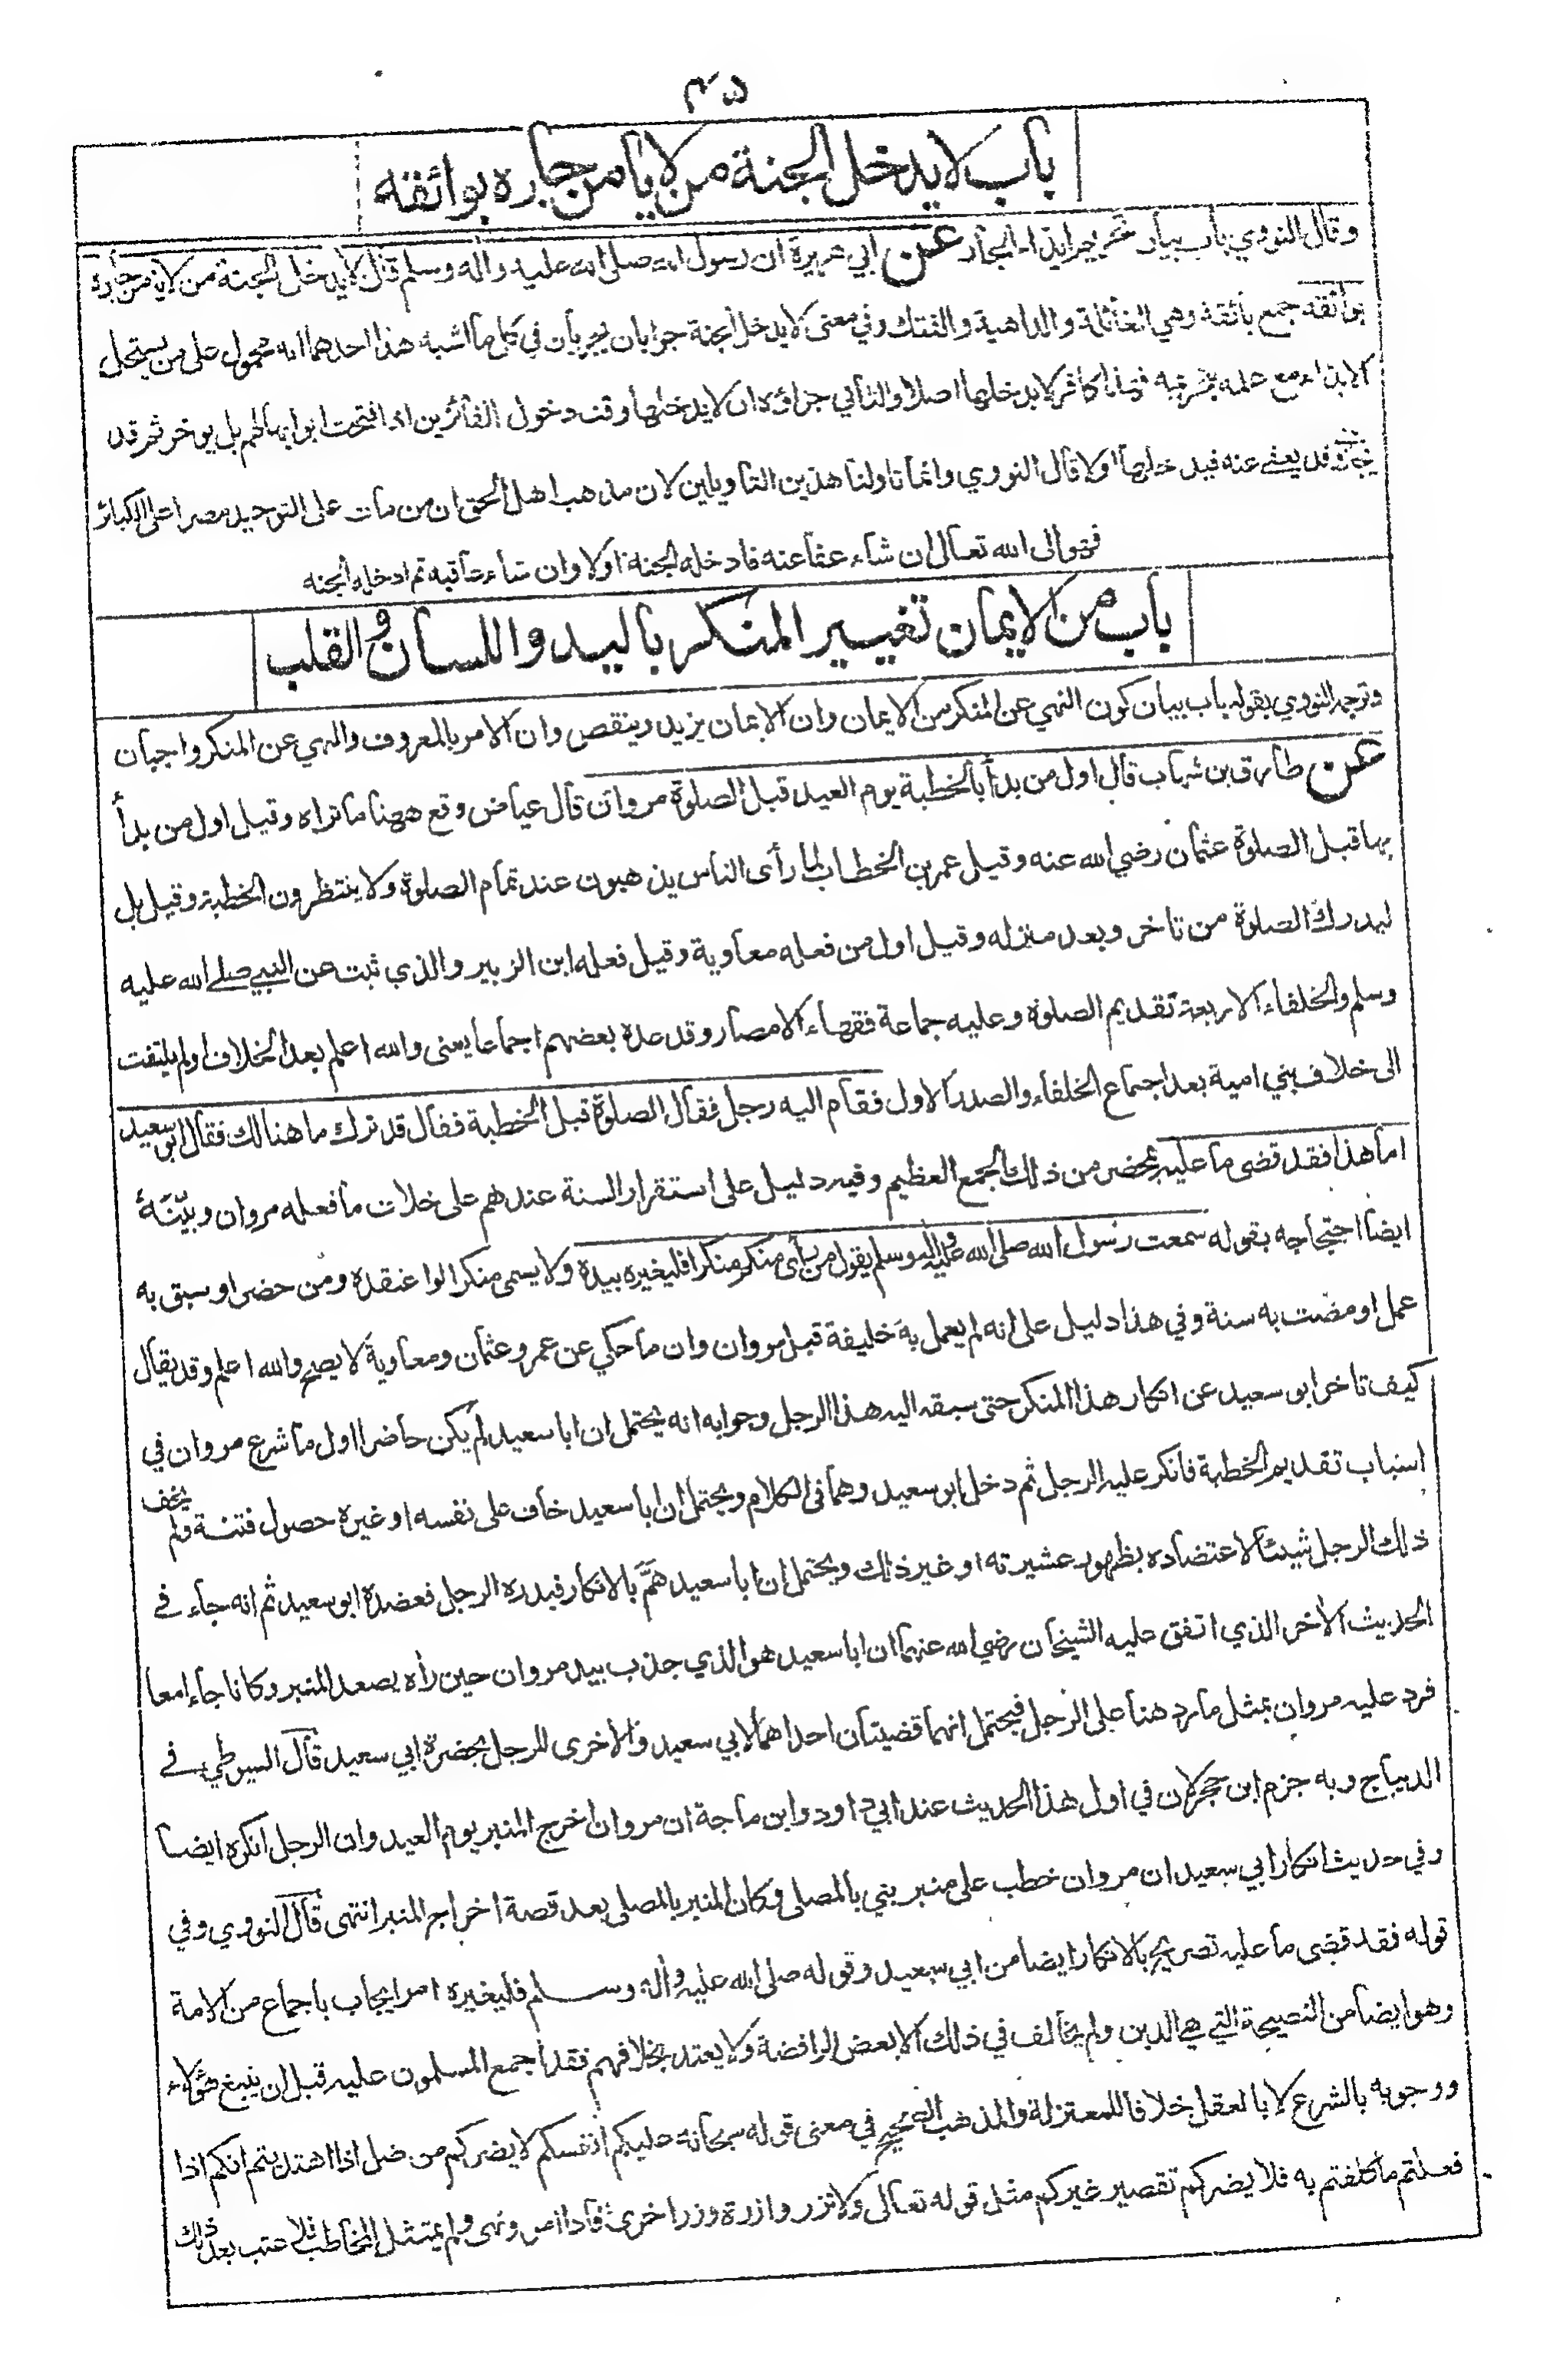 ٤٥
باب لا يدخل الجنة من لا يأمن جاره بوائقه
وقال النووي باب بيان تحريم ايذاء الجار عن ابي هريرة ان رسول الله صلى الله عليه واله وسلم قال لا يدخل الجنة من لا يأمن جاره
بوائقه جمع بائقة وهي الغائلة والداهية والفتك وفي معنى لا يدخل الجنة جوابان يجريان في كل ما اشبه هذا احدهما انه محمول على من يستحل
الايذاء مع علمه بتحريمه فهذا كافر لا يدخلها اصلا والثاني جزاؤه ان لا يدخلها وقت دخول الفائزين اذا فتحت ابوابها لهم بل يوخر ثم قد
يجازى وقد يعفى عنه فيدخلها اولا قال النووي وانما تاولنا هذين التاويلين لان مذهب اهل الحق ان من مات على التوحيد مصرا على الكبائر
فهو الى الله تعالى ان شاء عفا عنه فادخله الجنة اولا وان شاء عاقبه ثم ادخله الجنه
باب من الايمان تغيير المنكر باليد واللسان والقلب
وترجمه النووي بقوله باب بيان كون النهي عن المنكر من الايمان وان الايمان يزيد وينقص وان الامر بالمعروف والنهي عن المنكر واجبان
عن طارق بن شهاب قال اول من بدأ بالخطبة يوم العيد قبل الصلوة مروان قال عياض وقع ههنا ما تراه وقيل اول من بدأ
بها قبل الصلوة عثمان رضي الله عنه وقيل عمر بن الخطاب لما رأى الناس يذهبون عند تمام الصلوة ولا ينتظرون الخطبة وقيل بل
ليدرك الصلوة من تاخر وبعد منزله وقيل اول من فعله معاوية وقيل فعله ابن الزبير والذي ثبت عن النبي صلى الله عليه
وسلم والخلفاء الاربعة تقديم الصلوة وعليه جماعة فقهاء الامصار وقد عده بعضهم اجماعا يعني والله اعلم بعد الخلاف او لم يلتفت
الى خلاف بني امية بعد اجماع الخلفاء والصدر الاول فقام اليه رجل فقال الصلوة قبل الخطبة فقال قد ترك ما هنالك فقال ابو سعيد
اما هذا فقد قضى ما عليه بمحضر من ذلك الجمع العظيم وفيه دليل على استقرار السنة عندهم على خلاف ما فعله مروان وبيّنه
ايضا احتجاجه بقوله سمعت رسول الله صلى الله عليه واله وسلم يقول من رأى منكم منكرا فليغيره بيده ولا يسمى منكرا لو اعتقده ومن حضر او سبق به
عمل او مضت به سنة وفي هذا دليل على انه لم يعمل به خليفة قبل مروان وان ما حكي عن عمر وعثمان ومعاوية لا يصح والله اعلم وقد يقال
كيف تاخر ابو سعيد عن انكار هذا المنكر حتى سبقه اليه هذا الرجل وجوابه انه يحتمل ان ابا سعيد لم يكن حاضرا اول ما شرع مروان في
اسباب تقديم الخطبة فانكر عليه الرجل ثم دخل ابو سعيد وهما في الكلام ويحتمل ان ابا سعيد خاف على نفسه او غيره حصول فتنة ولم يخف
ذلك الرجل شيئا لاعتضاده بظهور عشيرته او غير ذلك ويحتمل ان ابا سعيد همّ بالانكار فبدره الرجل فعضده ابو سعيد ثم انه جاء في
الحديث الآخر الذي اتفق عليه الشيخان رضي الله عنهما ان ابا سعيد هو الذي جذب بيد مروان حين رأه يصعد المنبر وكانا جاءا معا
فرد عليه مروان بمثل ما رد هنا على الرجل فيحتمل انهما قضيتان احداهما لابي سعيد والاخرى للرجل بحضرة ابي سعيد قال السيوطي في
الديباج وبه جزم ابن حجر لان في اول هذا الحديث عند ابي داود وابن ماجة ان مروان اخرج المنبر يوم العيد وان الرجل انكره ايضا
وفي حديث انكار ابي سعيد ان مروان خطب على منبر بني بالمصلى وكان المنبر بالمصلى بعد قصة اخراج المنبر انتهى قال النووي وفي
قوله فقد قضى ما عليه تصريح بالانكار ايضا من ابي سعيد وقوله صلى الله عليه واله وسلم فليغيره امر ايجاب باجماع من الامة
وهو ايضا من النصيحة التي هي الدين ولم يخالف في ذلك الا بعض الرافضة ولا يعتد بخلافهم فقد اجمع المسلمون عليه قبل ان ينبغ هؤلاء
ووجوبه بالشرع لا بالعقل خلافا للمعتزلة والمذهب الصحيح في معنى قوله سبحانه عليكم انفسكم لا يضركم من ضل اذا اهتديتم انكم اذا
فعلتم ما كلفتم به فلا يضركم تقصير غيركم مثل قوله تعالى ولا تزر وازرة وزر اخرى فاذا امر ونهى ولم يمتثل المخاطب فلا عتب بعد ذلك